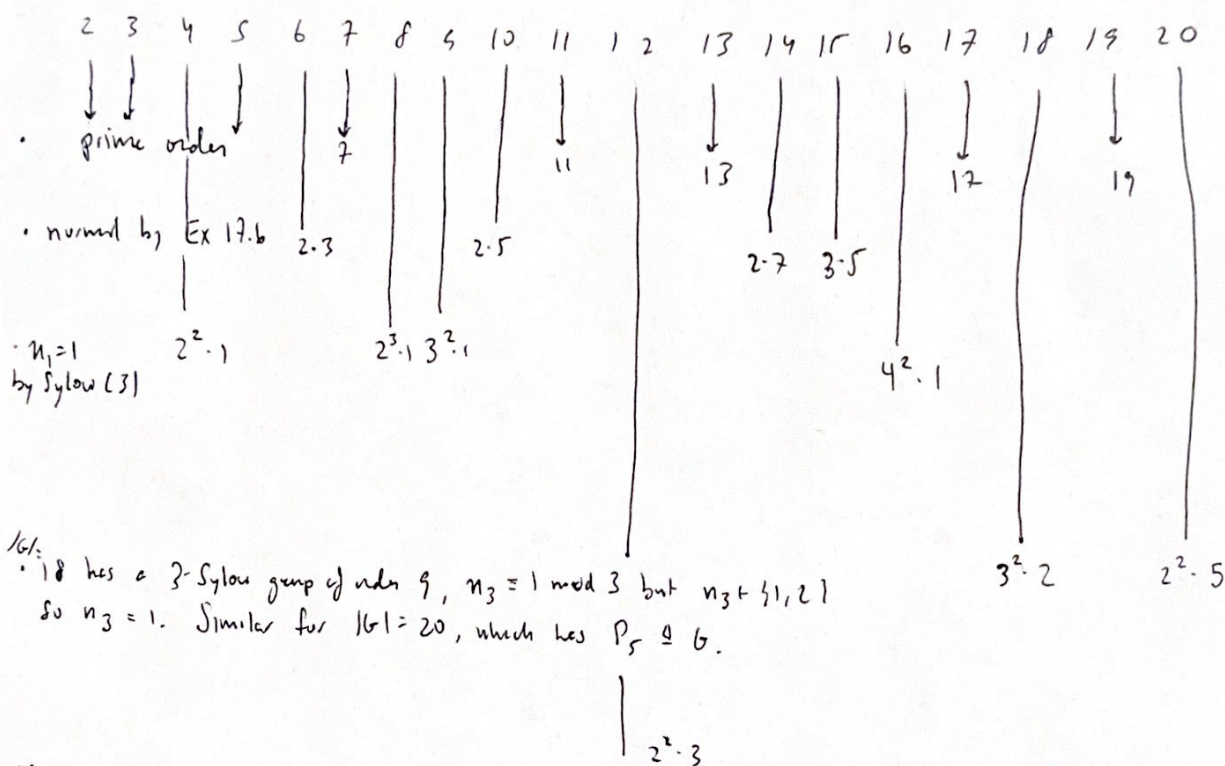 2 3 4 5 6 7 8 9 10 11 12 13 14 15 16 17 18 19 20
· prime order 7 11 13 17 19
· normal by Ex 17.b 2·3 2·5 2·7 3·5
· n₁=1 2²·1 2³·1 3²·1
by Sylow (3) 4²·1
|G|:
· 18 has a 3-Sylow group of order 9, n₃ ≡ 1 mod 3 but n₃ ∈ {1,2} 3²·2 2²·5
so n₃ = 1. Similar for |G| = 20, which has P₅ ⊴ G.
2²·3